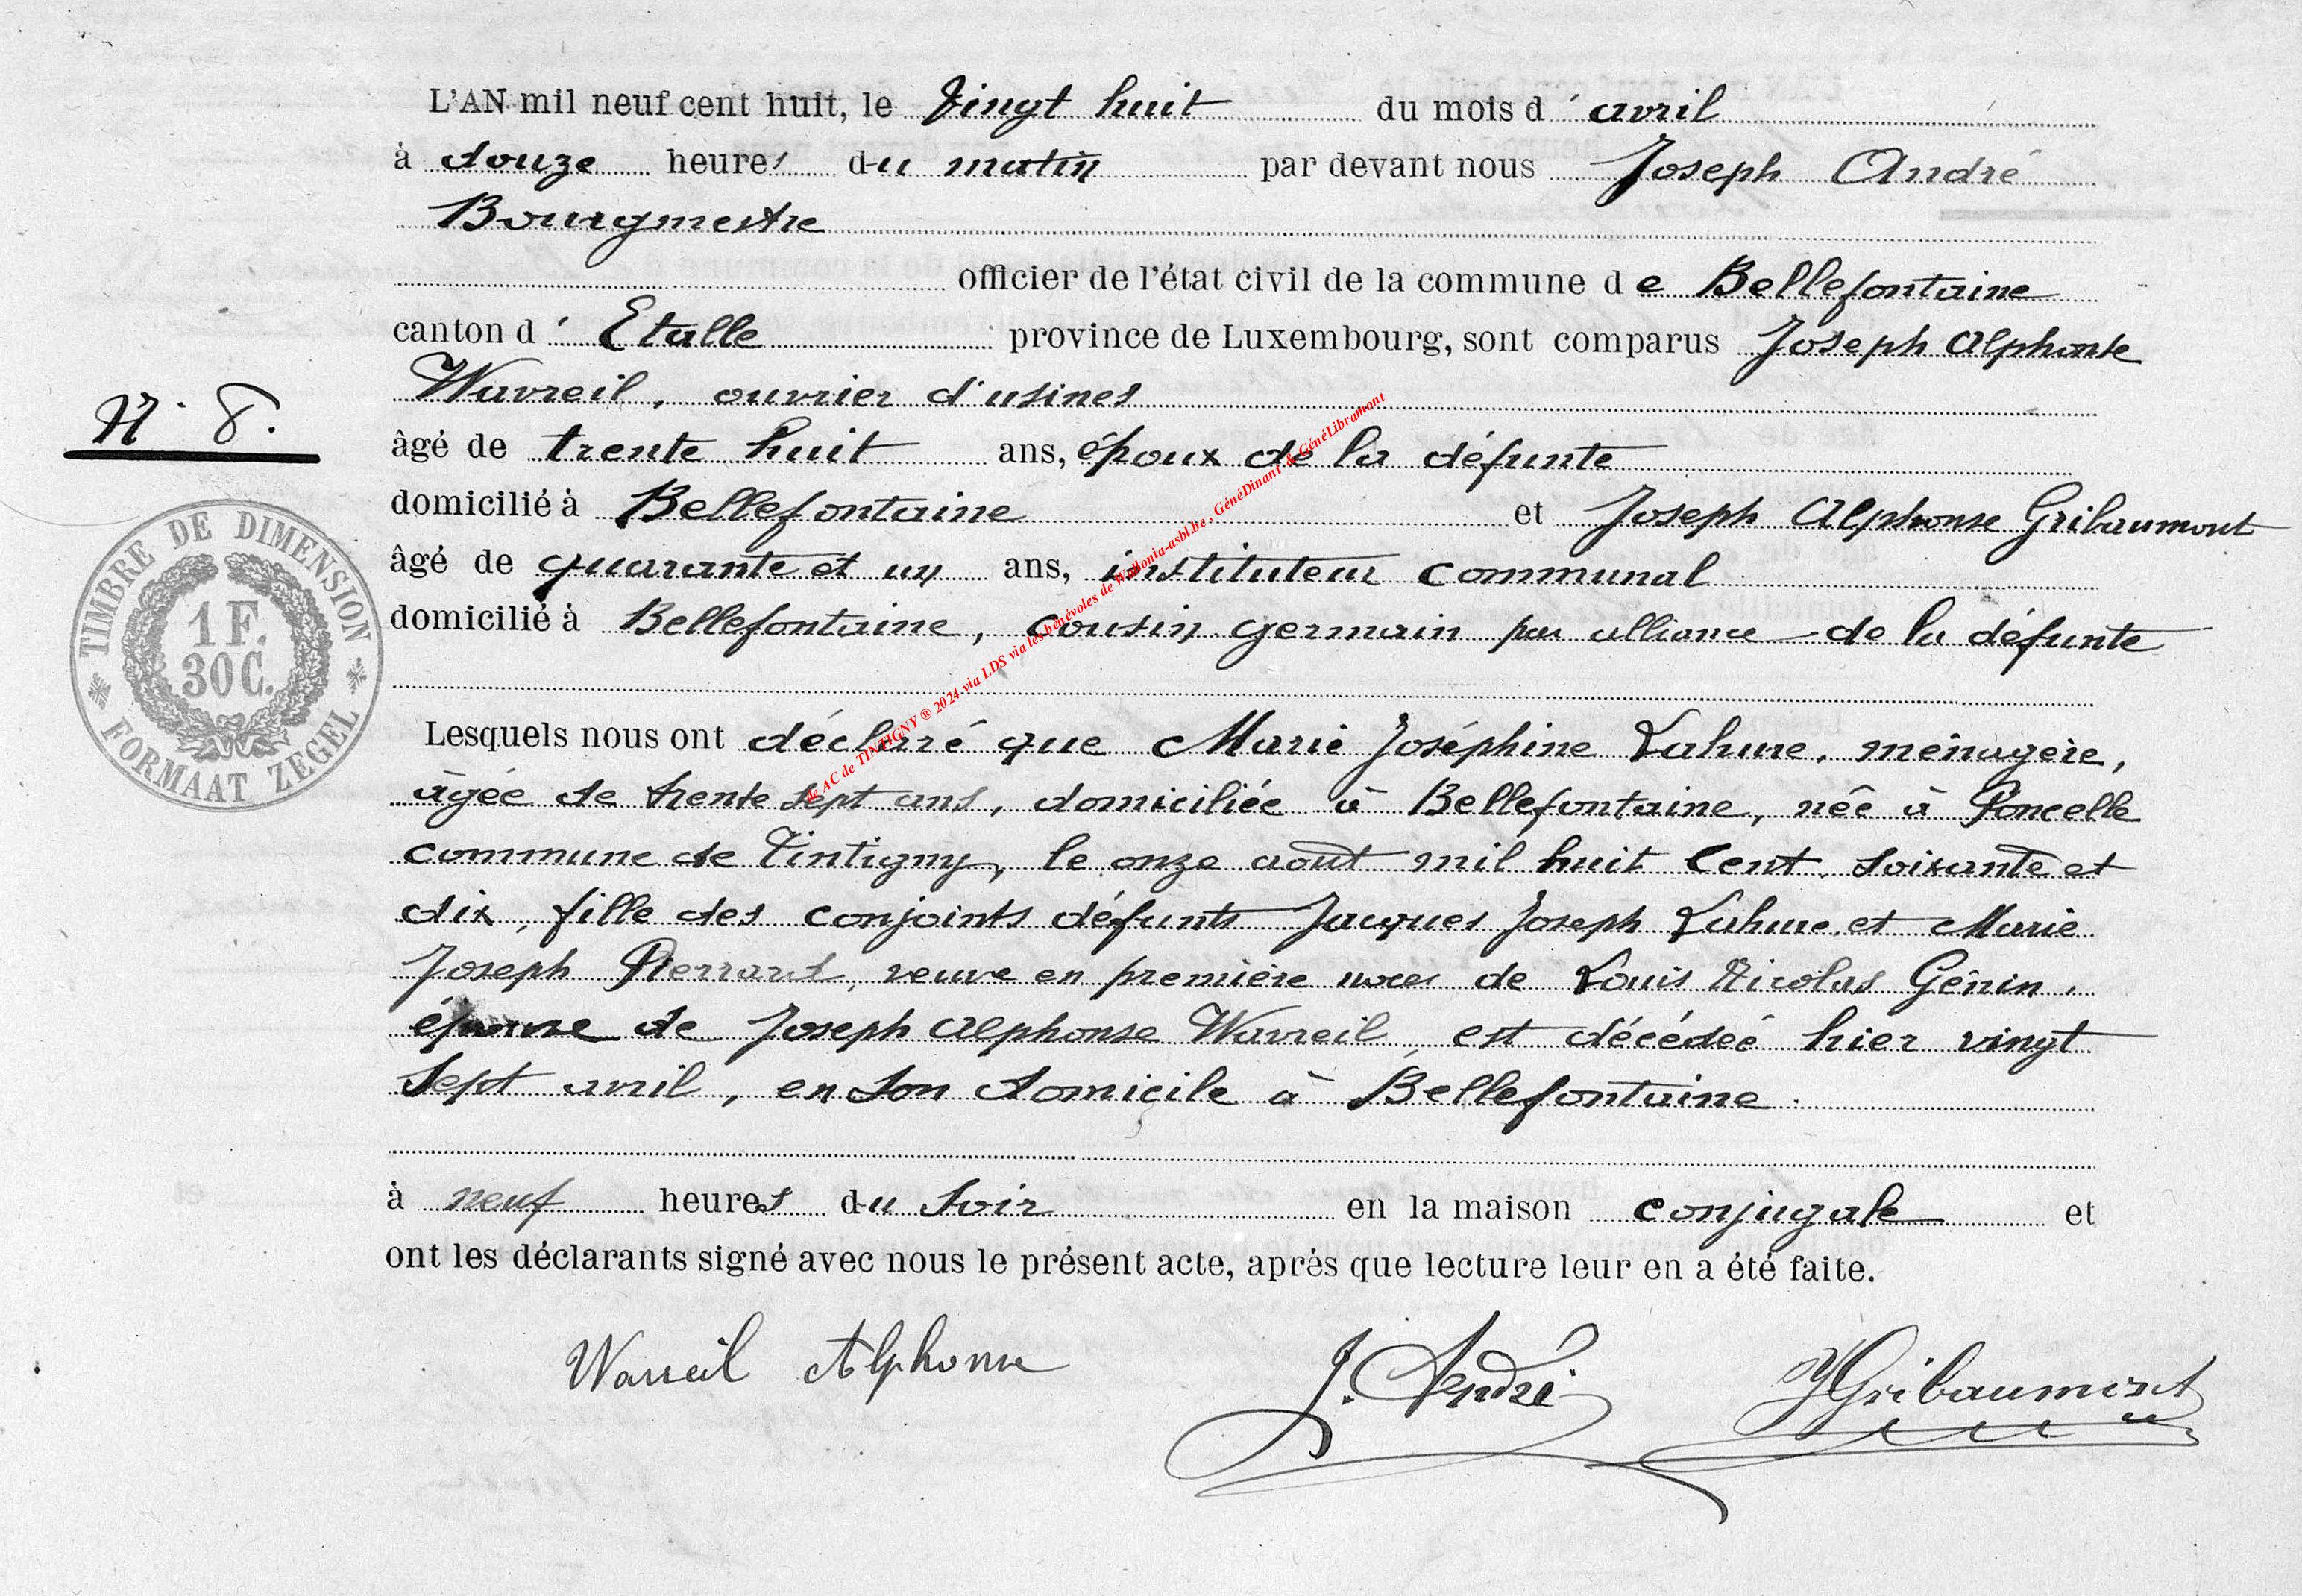 L'AN mil neuf cent huit, le Vingt huit du mois d' avril
à douze heures du matin par devant nous Joseph André
Bourgmestre
officier de l'état civil de la commune de Bellefontaine
canton d' Etalle province de Luxembourg, sont comparus Joseph Alphonse
Wavreil, ouvrier d'usines
N° 8.
âgé de trente huit ans, époux de la défunte
domicilié à Bellefontaine et Joseph Alphonse Gribaumont
âgé de quarante et un ans, instituteur communal
domicilié à Bellefontaine, cousin germain par alliance de la défunte
TIMBRE DE DIMENSION
1 F.
30 C.
FORMAAT ZEGEL
Lesquels nous ont déclaré que Marie Joséphine Lahure, ménagère,
âgée de trente sept ans, domiciliée à Bellefontaine, née à Poncelle
commune de Tintigny, le onze août mil huit cent soixante et
dix, fille des conjoints défunts Jacques Joseph Lahure et Marie
Joseph Pierrard, veuve en première noces de Louis Nicolas Génin,
épouse de Joseph Alphonse Wavreil, est décédée hier vingt
sept avril, en son domicile à Bellefontaine.
à neuf heures du soir en la maison conjugale et
ont les déclarants signé avec nous le présent acte, après que lecture leur en a été faite.
Wavreil Alphonse J. André JGribaumont
de AC de TINTIGNY ® 2024 via LDS via les bénévoles de Wallonia-asbl.be, GénéDinant & GénéLibramont